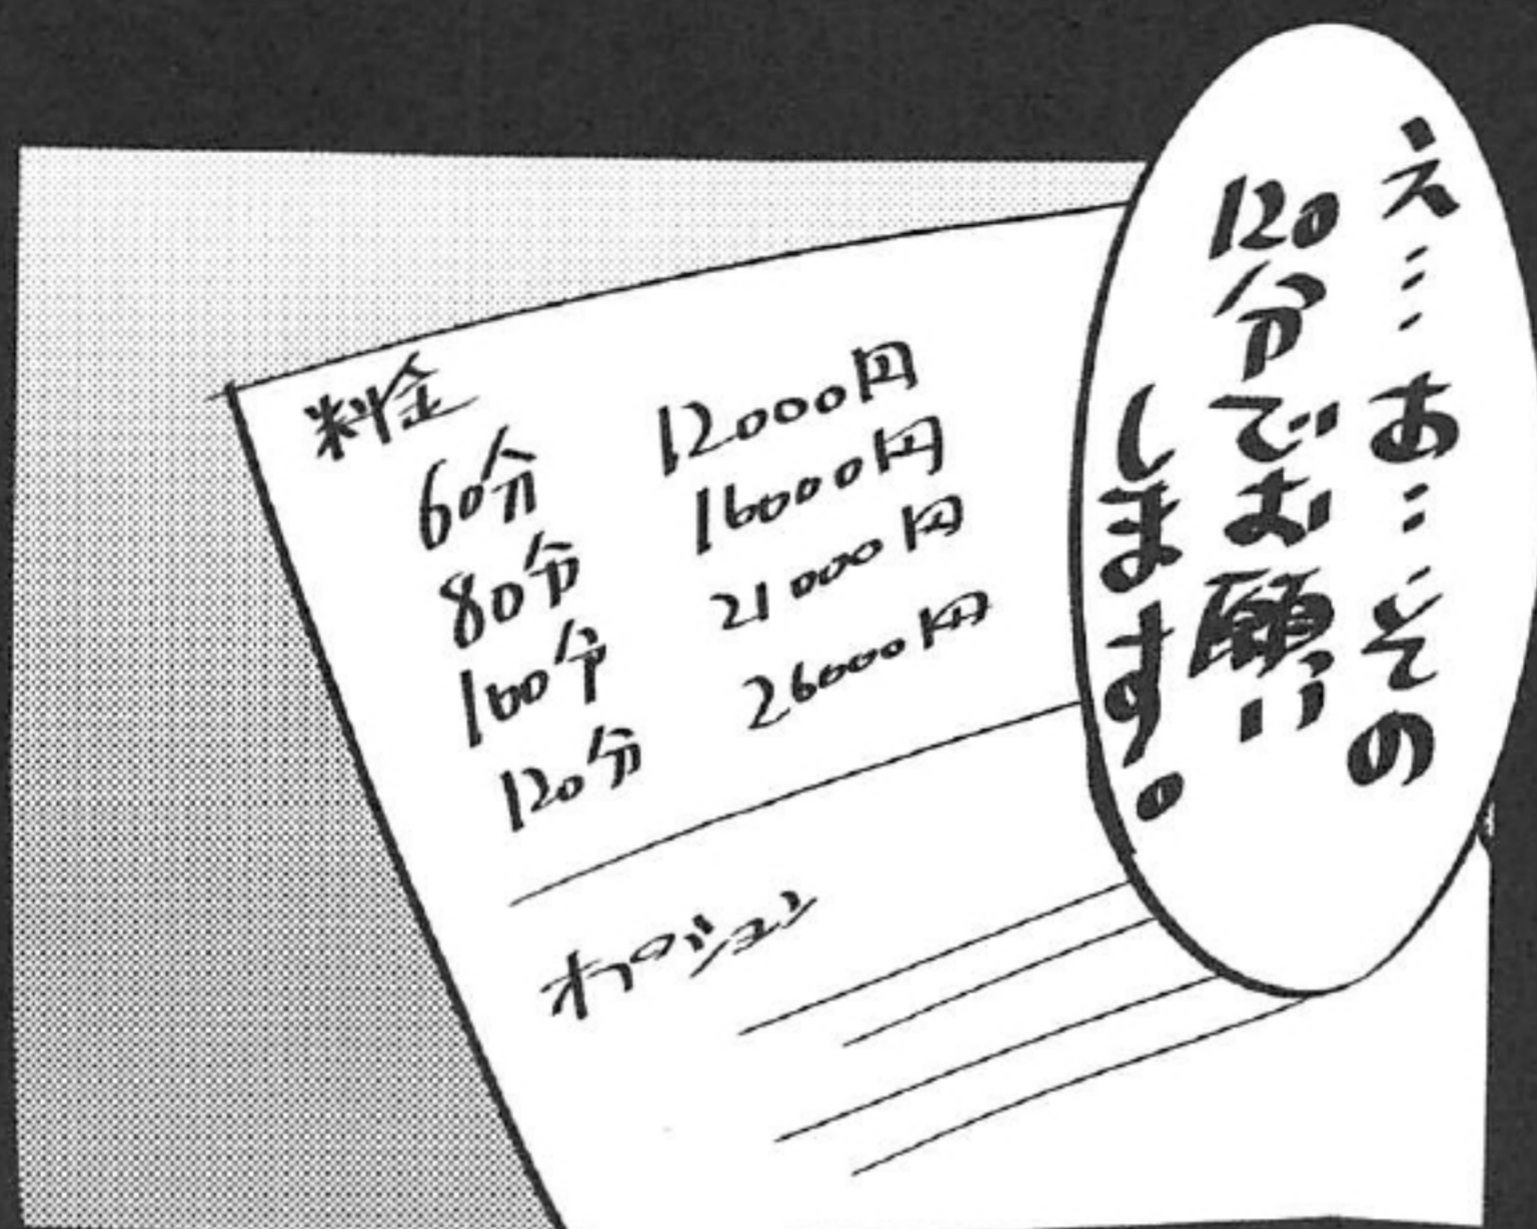 え…あ…その
120分でお願い
します。
料金
60分 12000円
80分 16000円
100分 21000円
120分 26000円
オプション